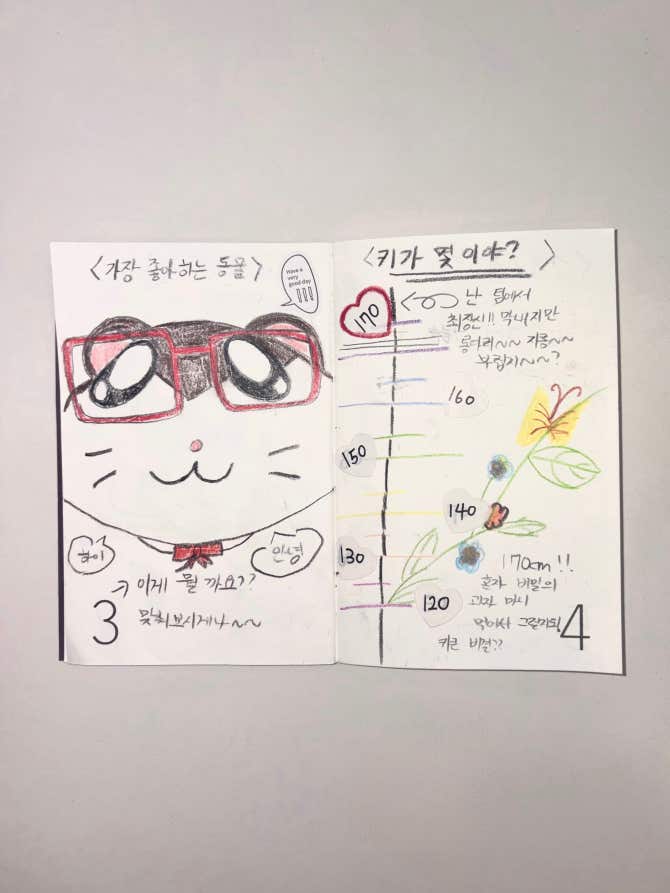 <가장 좋아하는 동물>
Have a
very
good day
!!!
하이
안녕
이게 뭘 까요??
맞춰보시게나~~
3
<키가 몇 이야?>
170
난 팀에서
최장신!! 먹내지만
롱다리~~ 자름~~
부럽지~~?
160
150
140
130
120
170cm!!
혼자 비밀의
과자 마시
먹어서 그런가!!
키큰 비결??
4